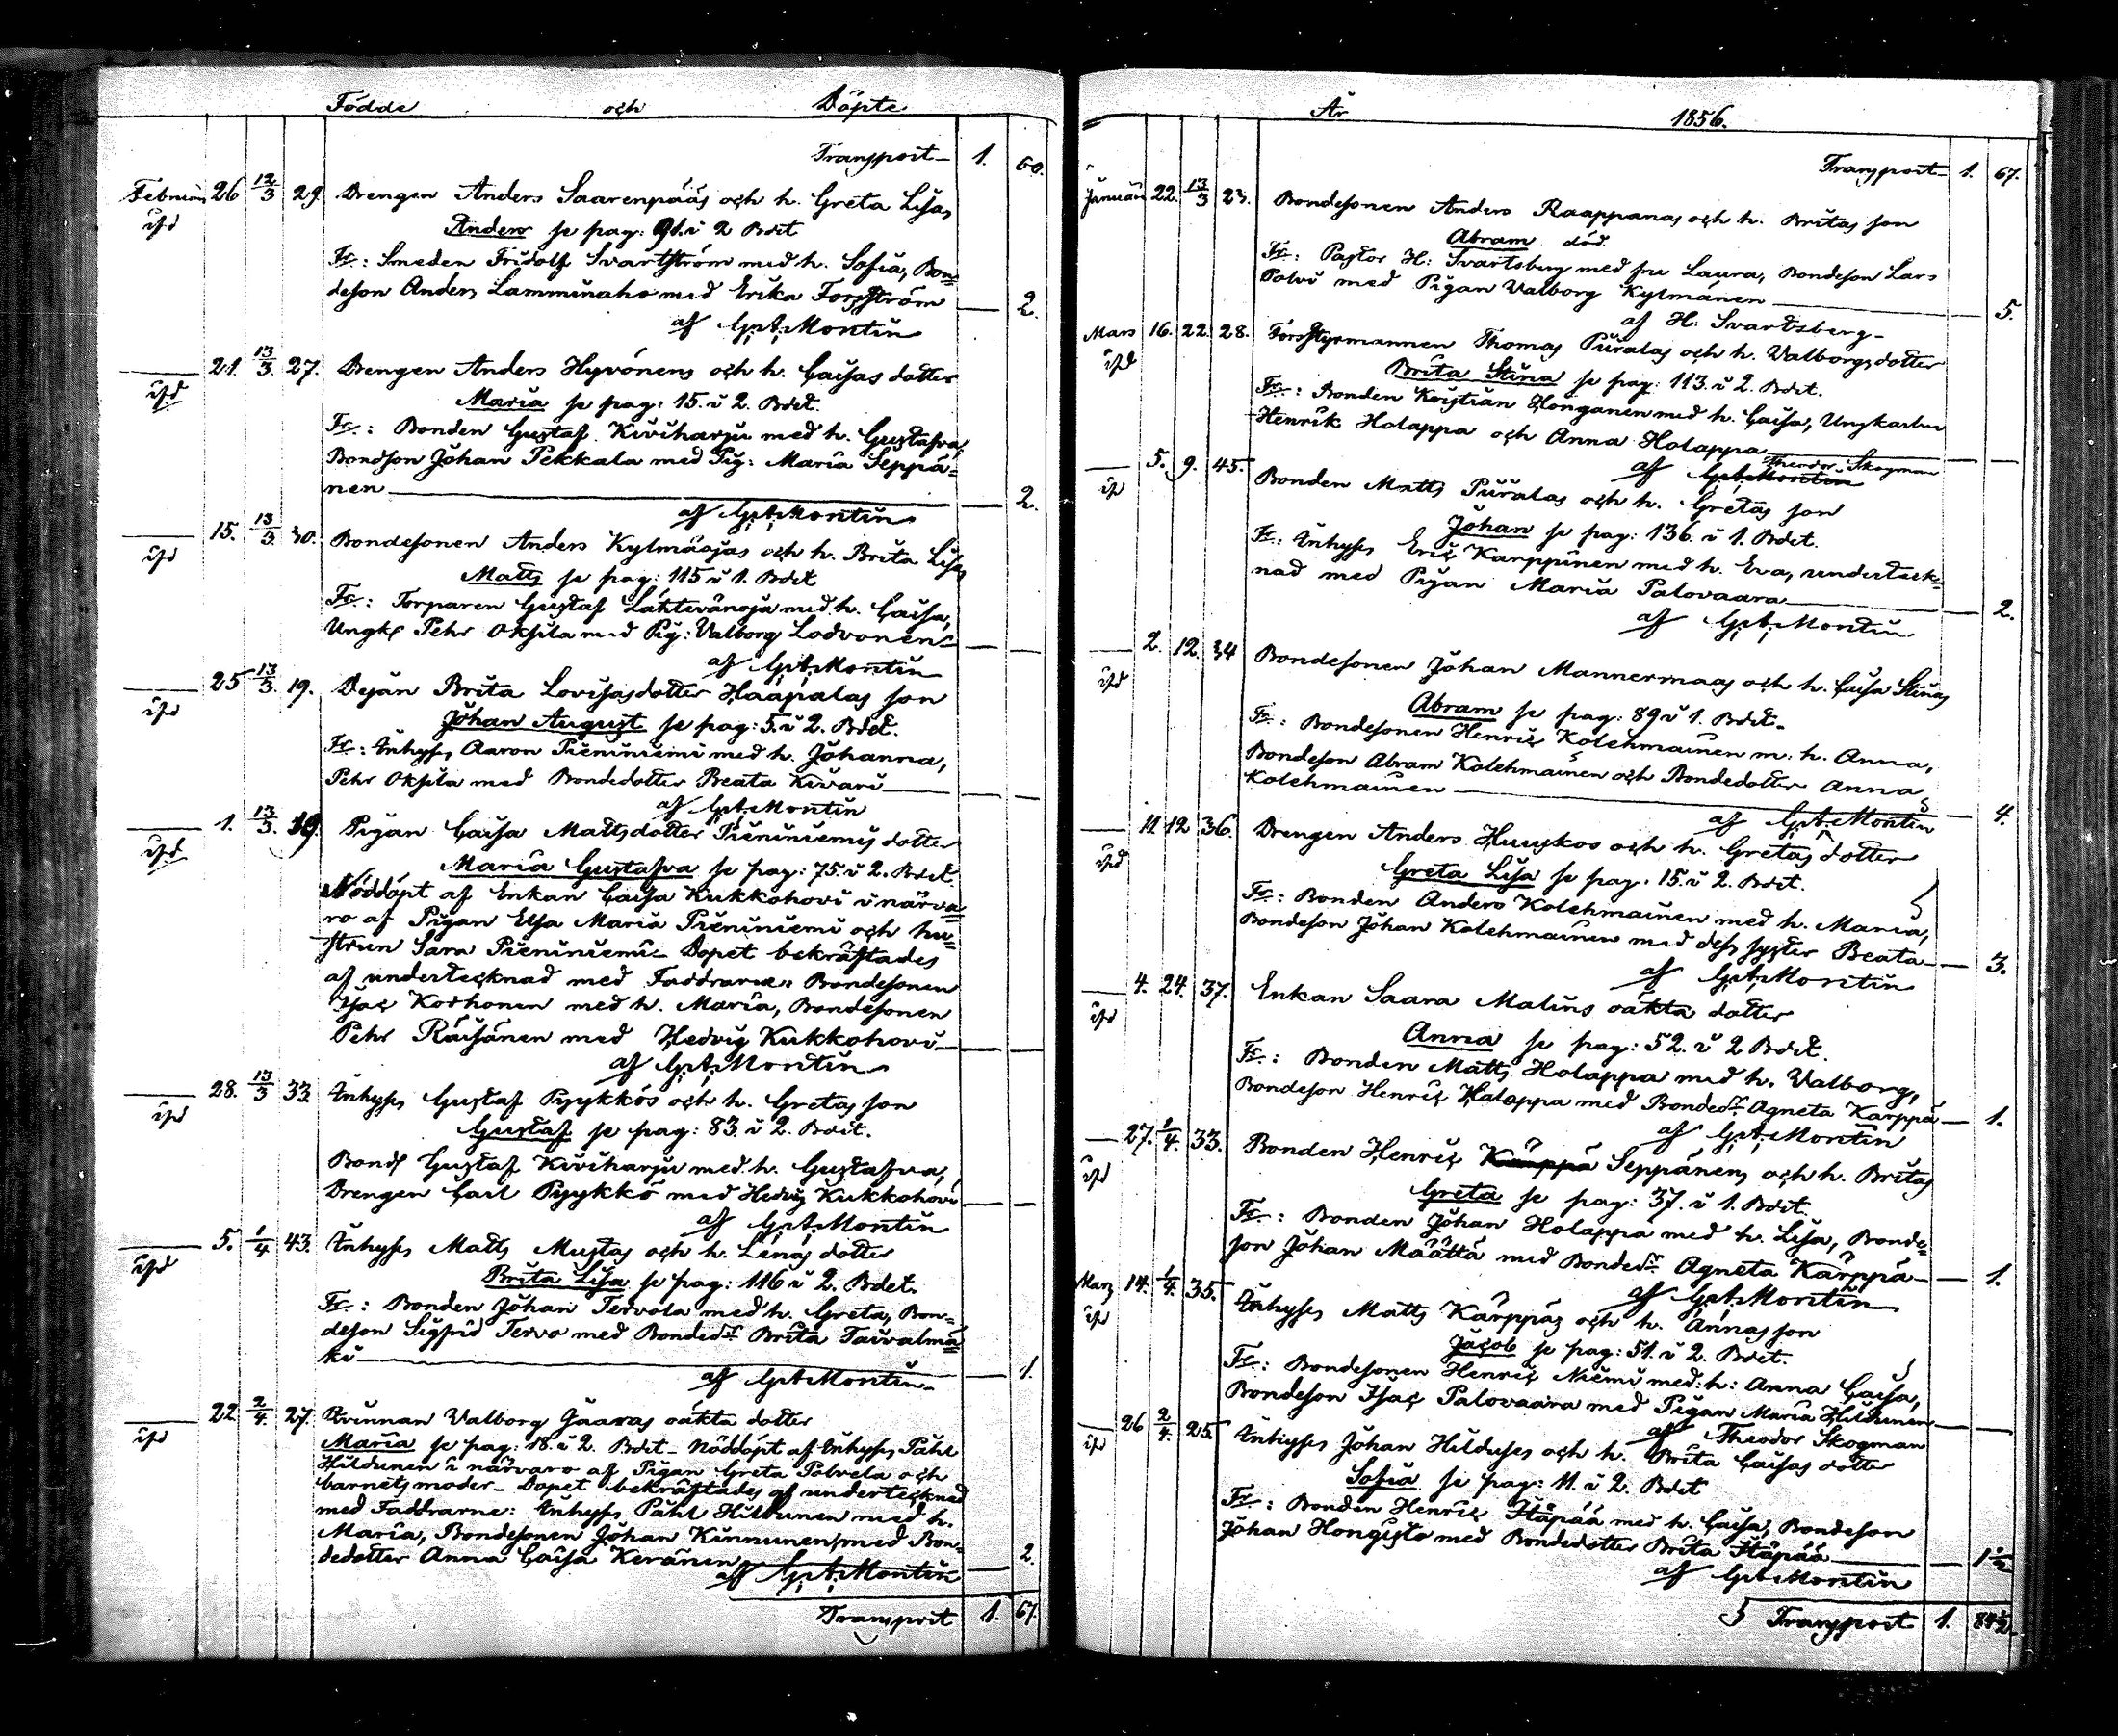 Födde och Döpte
Transport 1. 60.
Februari 26 12/3 29. Drengen Anders Saarenpääs och h. Greta Lisas
ipd Anders se pag: 91. i 2 Bdet
Fr: Smeden Fridolf Svartström med h. Sofia, Bon=
deson Anders Lamminaho med Erika Forsström — 2.
af G.A. Montin
21. 13/3. 27. Drengen Anders Hyvönens och h. Caisas dotter
ipd Maria se pag: 15. i 2. Bdet.
Fr: Bonden Gustaf Kiviharju med h. Gustafva,
Bondson Johan Pekkala med Pig: Maria Seppä=
nen — 2.
af G.A. Montin
15. 13/3. 30. Bondesonen Anders Kylmäojas och h. Brita Lisas
ipd Matts se pag: 115 i 1. Bdet
Fr: Torparen Gustaf Lähtevänoja med h. Caisa,
Ungk Pehr Oksila med Pig: Valborg Lodvonen —
af G.A. Montin
25 13/3. 19. Dejan Brita Lovisasdotter Haapalas son
ipd Johan August se pag: 5. i 2. Bdet.
Fr: Inhyss Aaron Pieniniemi med h. Johanna,
Pehr Oksila med Bondedotter Beata Kivari —
af G.A. Montin
1. 13/3. 39 Pigan Caisa Mattsdotter Pieniniemis dotter
ipd Maria Gustafva se pag: 75. i 2. Bdet.
Nöddöpt af Enkan Caisa Kukkohovi i närva=
ro af Pigan Elsa Maria Pieniniemi och hu=
strun Sara Pieniniemi – Dopet bekräftades
af undertecknad med Faddrarna: Bondesonen
Isac Korhonen med h. Maria, Bondesonen
Pehr Räisänen med Hedvig Kukkohovi —
af G.A. Montin
28. 13/3 33. Inhyss Gustaf Pyykkös och h. Gretas son
ipd Gustaf se pag: 83. i 2. Bdet.
Bonds Gustaf Kiviharju med h. Gustafva,
Drengen Carl Pyykkö med Hedvig Kukkohovi —
af G.A. Montin
5. 1/4 43. Inhyss Matts Mustas och h. Lenas dotter
ipd Brita Lisa se pag: 116 i 2. Bdet.
Fr: Bonden Johan Tervola med h. Greta, Bon=
deson Sigfrid Tervo med Bondedr Brita Taivalmä=
ki — 1.
af G.A. Montin
22 2/4. 27. Qvinnan Valborg Jaaras oäkta dotter
ipd Maria se pag: 18. i 2. Bdet – Nöddöpt af Inhyss Påhl
Hildunen i närvaro af Pigan Greta Polvela och
barnets moder – Dopet bekräftades af undertecknad
med Faddrarne: Inhyss Påhl Hildunen med h.
Maria, Bondesonen Johan Kinnunen med Bon=
dedotter Anna Caisa Keränen — 2.
af G.A. Montin
Transport 1. 67.
År 1856.
Transport 1. 67.
Januari 22. 13/3 23. Bondesonen Anders Raappanas och h. Britas son
Abram död.
Fr: Pastor H: Svartsberg med fru Laura, Bondeson Lars
Polvi med Pigan Valborg Kylmänen — 5.
af H: Svartsberg
Mars 16. 22. 28. Forsstyrmannen Thomas Puralas och h. Valborgs dotter
ipd Brita Stina se pag: 113. i 2. Bdet.
Fr: Bonden Kristian Honganen med h. Caisa, Ungkarlen
Henrik Holappa och Anna Holappa —
af G.A. Montin Theodor Skogman
5. 9. 45. Bonden Matts Puralas och h. Gretas son
ip Johan se pag: 136. i 1. Bdet.
Fr: Inhyss Eric Karppinen med h. Eva, underteck=
nad med Pigan Maria Palovaara — 2.
af G.A. Montin
2. 12. 34 Bondesonen Johan Mannermaas och h. Caisa Stinas
ipd Abram se pag: 89 i 1. Bdet.
Fr: Bondesonen Henric Kolehmainen m: h. Anna,
Bondeson Abram Kolehmainen och Bondedotter Anna
Kolehmainen — 4.
af G.A. Montin
11 12 36. Drengen Anders Huuskos och h. Gretas dotter
ipd Greta Lisa se pag. 15. i 2. Bdet.
Fr: Bonden Anders Kolehmainen med h. Maria,
Bondeson Johan Kolehmainen med dess syster Beata — 3.
af G.A. Montin
4. 24. 37. Enkan Saara Malins oäkta dotter
ipd Anna se pag: 52. i 2 Bdet.
Fr: Bonden Matts Holappa med h. Valborg,
Bondeson Henric Holappa med Bondedr Agneta Karppä — 1.
af G.A. Montin
27. 1/4. 33. Bonden Henric Karppä Seppänens och h. Britas
ipd Greta se pag: 37. i 1. Bdet.
Fr: Bonden Johan Holappa med h. Lisa, Bonde=
son Johan Määttä med Bondedr Agneta Karppä — 1.
af G.A. Montin
Mars 14. 1/4. 35. Inhyss Matts Karppäs och h. Annas son
ip Jacob se pag: 51. i 2. Bdet.
Fr: Bondesonen Henric Niemi med: h: Anna Caisa,
Bondeson Isac Palovaara med Pigan Maria Hildunen
af Theodor Skogman
26 2/4. 25. Inhyss Johan Hilduses och h. Brita Caisas dotter
ip Sofia se pag: 11. i 2. Bdet
Fr: Bonden Henric Itäpää med h. Caisa, Bondeson
Johan Hongisto med Bondedotter Brita Itäpää — 1 1/2
af G.A. Montin
Transport 1. 84 1/2